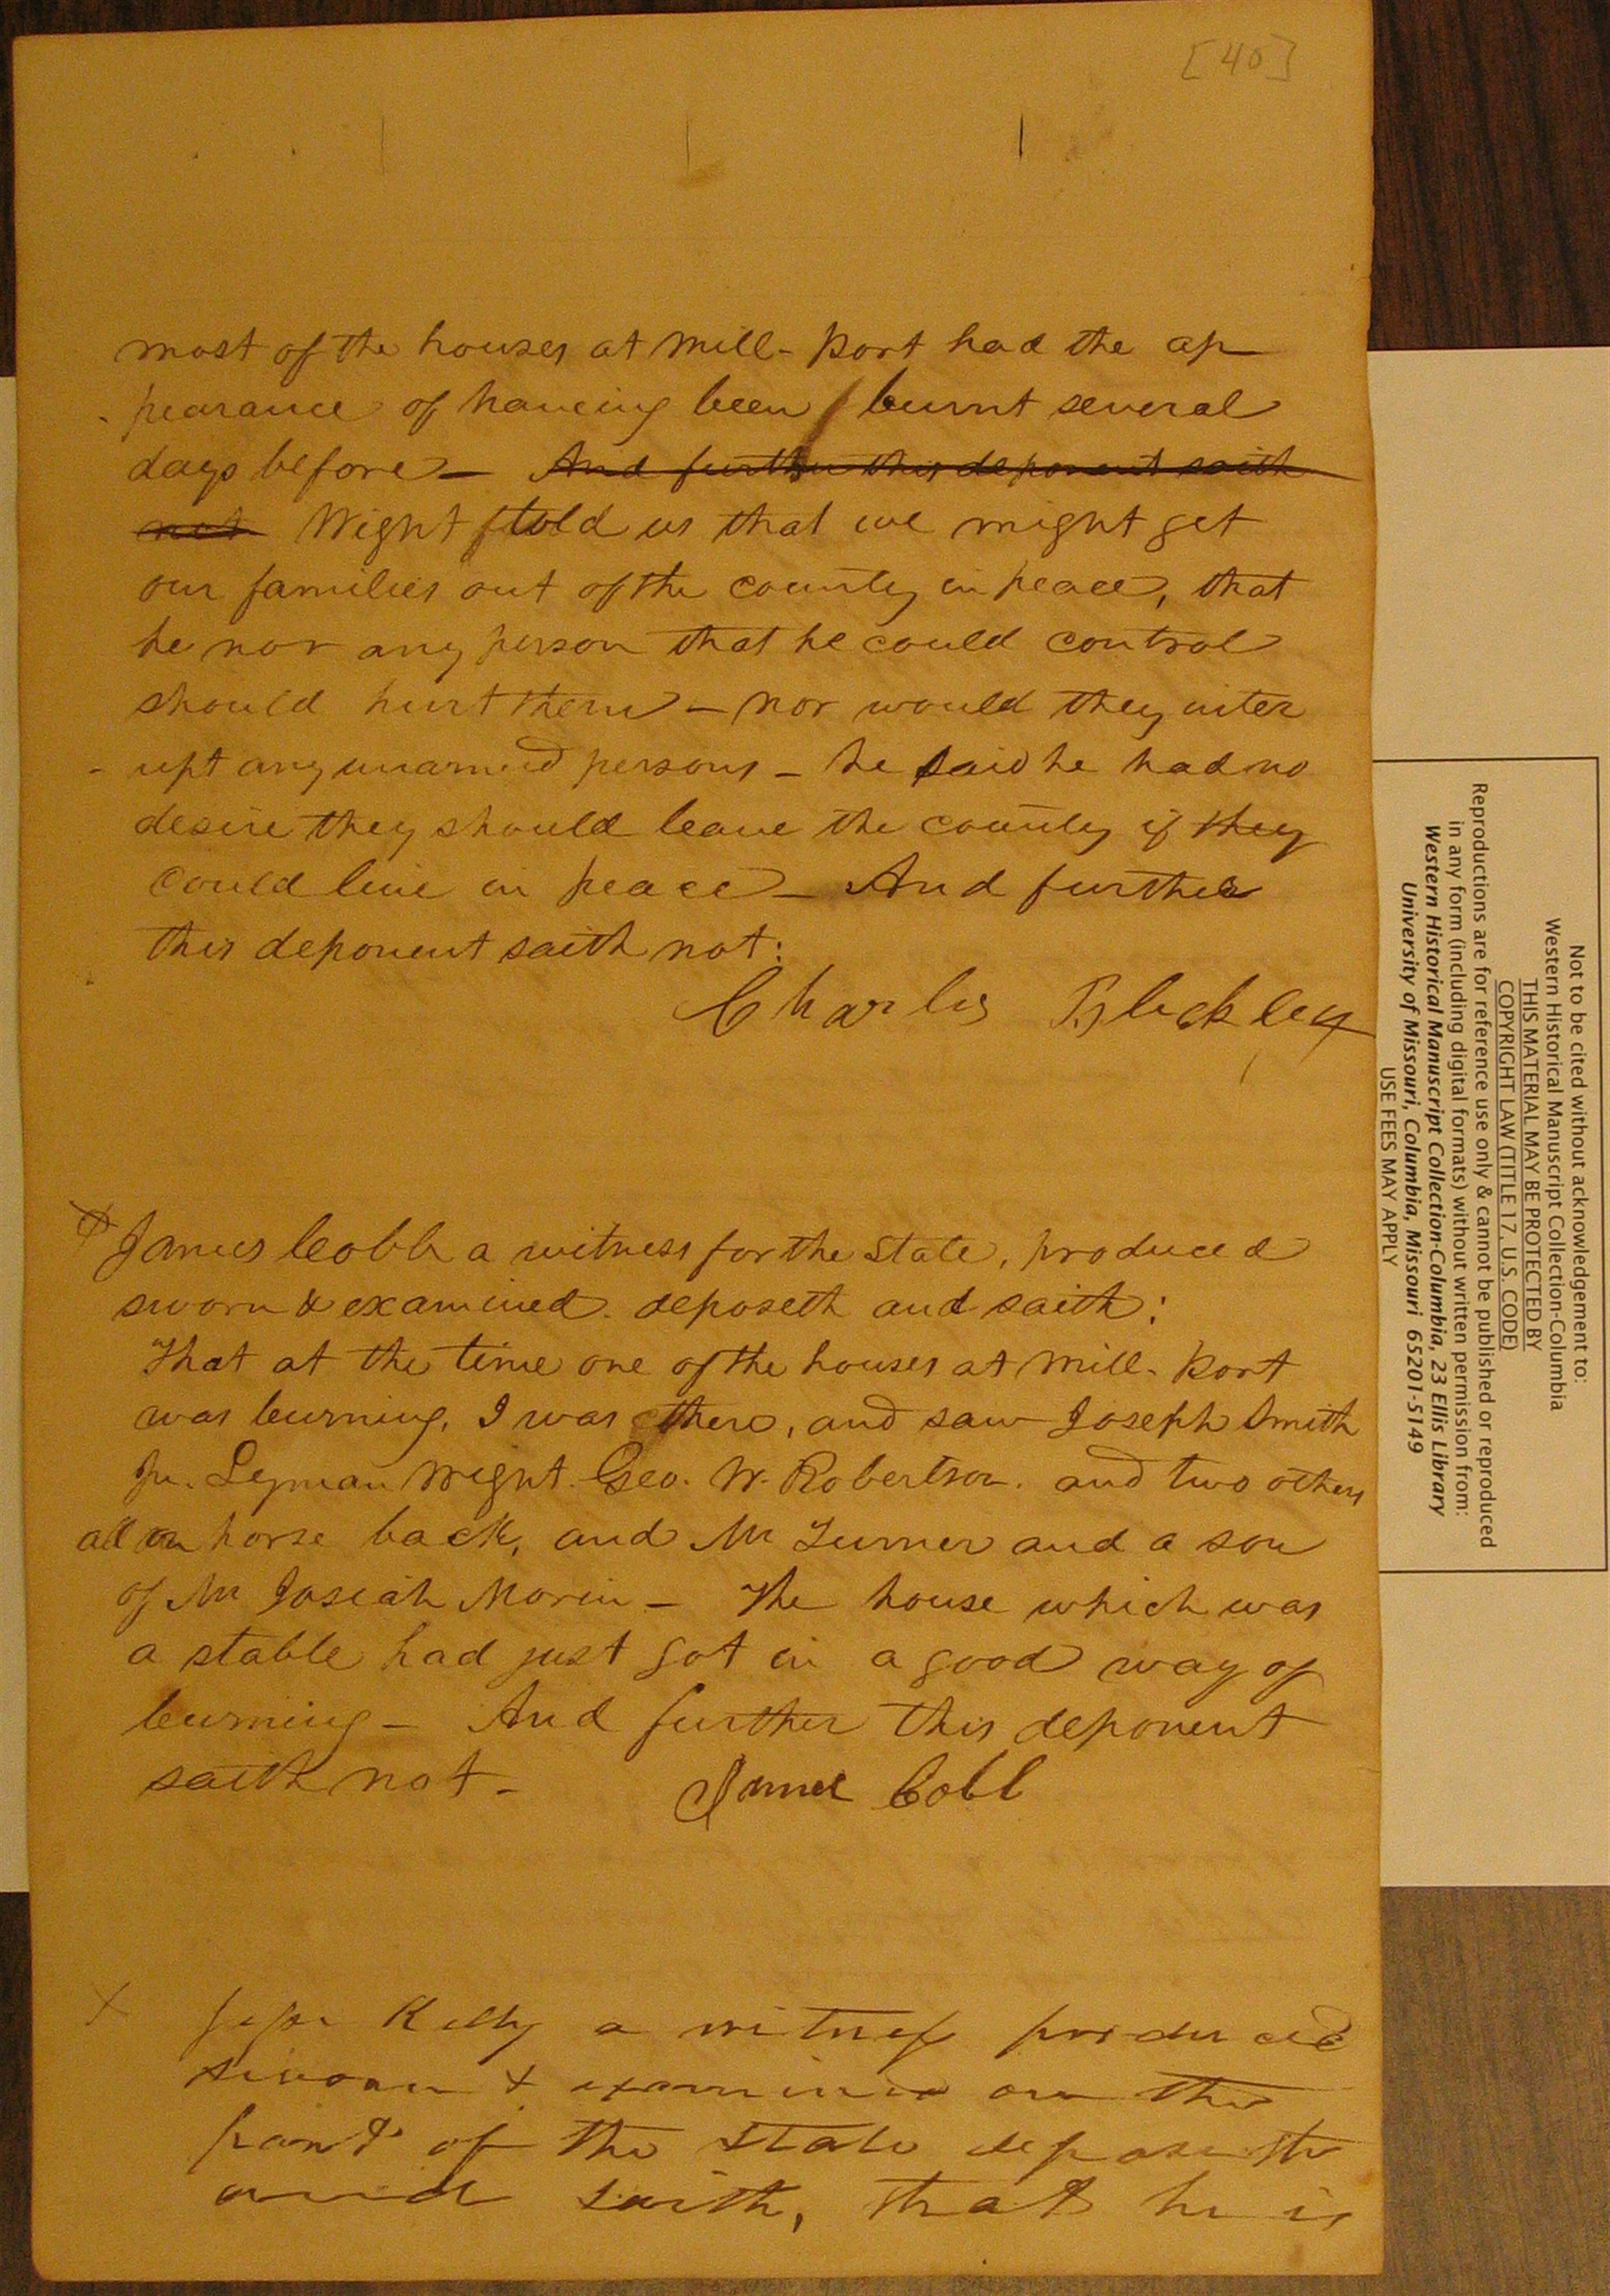 [40]
most of the houses at Mill-Port had the ap
- pearance of haveing been burnt several
days before — And further this deponent saith
not Wight told us that we might get
our families out of the county in peace, that
he nor any person that he could control
should hurt them — nor would they inter
- upt any unarmed persons — he said he had no
desire they should leave the county if they
could live in peace — And further
this deponent saith not:
Charles Bleckley
James Cobb a witness for the State, produced
sworn & examined. deposeth and saith:
That at the time one of the houses at Mill-Port
was burning, I was there, and saw Joseph Smith
Jr. Lyman Wight. Geo. W. Robertson. and two others
all on horse back, and Mr Turner and a son
of Mr Josiah Morin — The house which was
a stable had just got in a good way of
burning — And further this deponent
saith not —
James Cobb
X Jesse Kelly a witness produced
sworn & examined on the
part of the State deposeth
and saith, that he is
Not to be cited without acknowledgement to:
Western Historical Manuscript Collection-Columbia
THIS MATERIAL MAY BE PROTECTED BY
COPYRIGHT LAW (TITLE 17, U.S. CODE)
Reproductions are for reference use only & cannot be published or reproduced
in any form (including digital formats) without written permission from:
Western Historical Manuscript Collection-Columbia, 23 Ellis Library
University of Missouri, Columbia, Missouri 65201-5149
USE FEES MAY APPLY